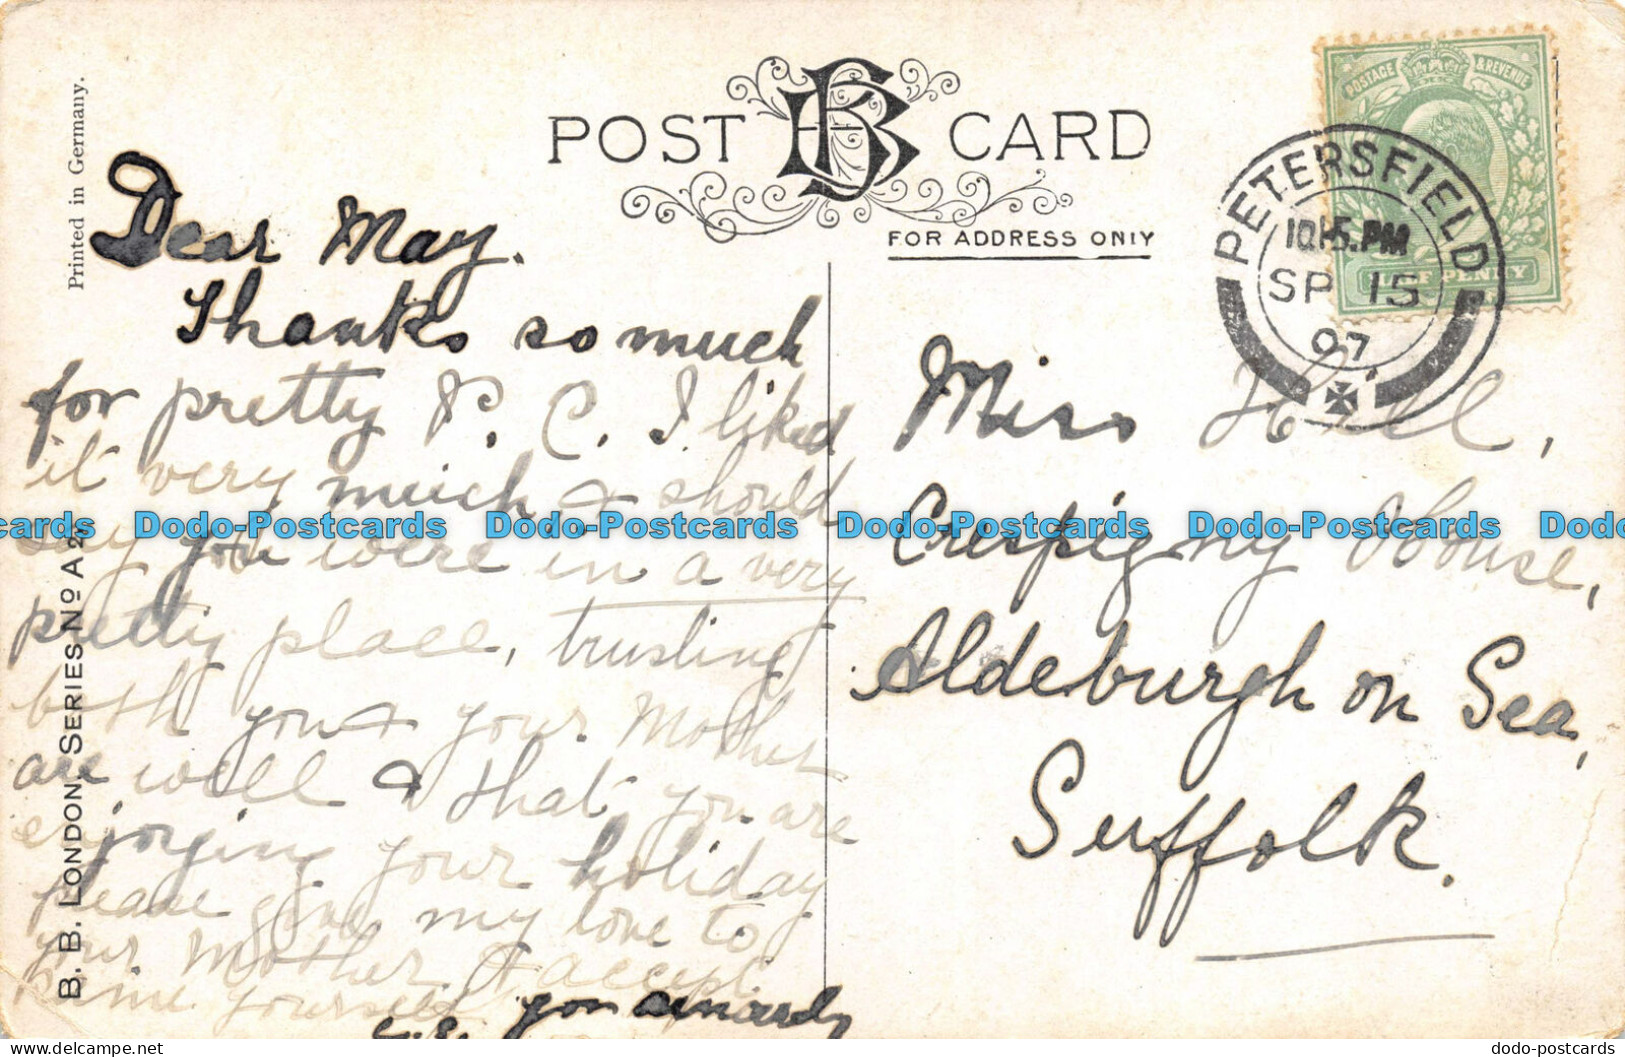 Printed in Germany.
POST CARD
FOR ADDRESS ONLY
POSTAGE & REVENUE
HALF PENNY
PETERSFIELD
10.15.PM
SP 15
07
Dear May.
Thanks so much
for pretty P. C. I liked
it very much & should
say you were in a very
pretty place, trusting
both you & your Mother
are well & that you are
enjoying your holiday
please give my love to
your Mother & accept
same yourself
Miss Hill,
Crespigny House,
Aldeburgh on Sea,
Suffolk.
B. B. LONDON, SERIES Nº A 2
Dodo-Postcards Dodo-Postcards Dodo-Postcards Dodo-Postcards
dodo-postcards